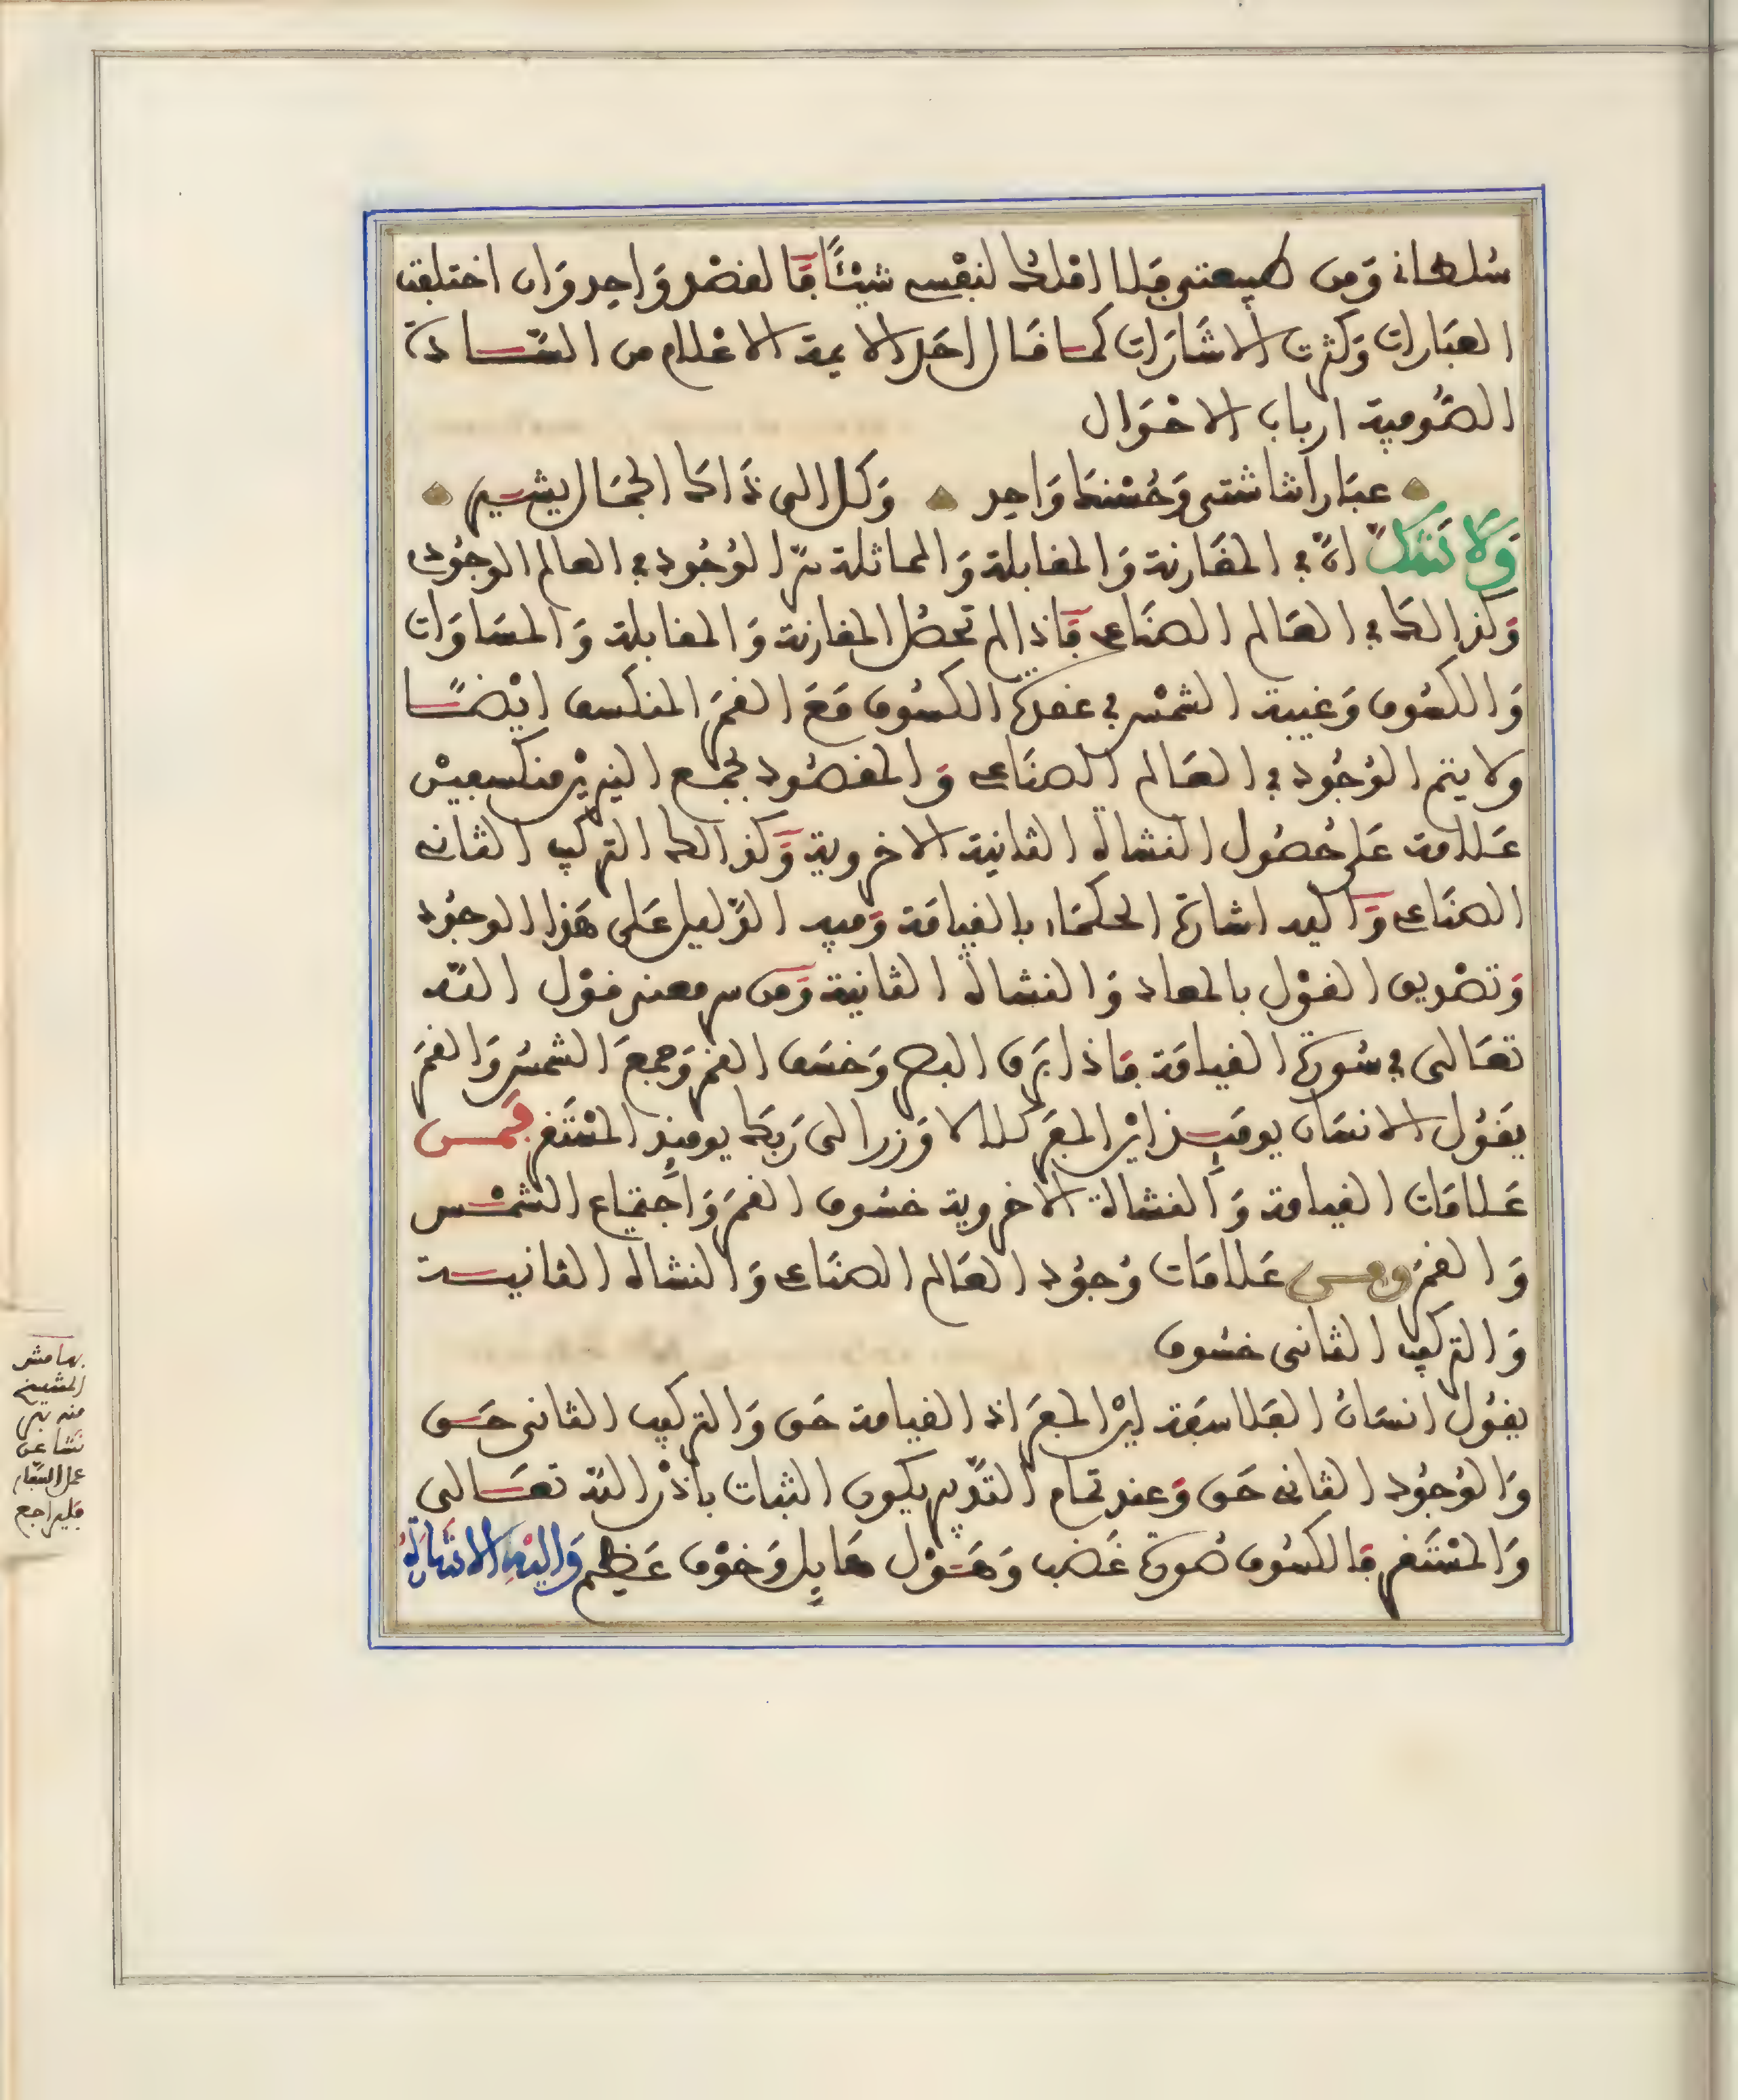 سُلطانى وَمن طبيعتى فلا املك لنفْسى شيئًا فَالقصْد وَاحد وَان اختلفت
العبَارات وَكثرت الاشَارَات كما قال احَد الايمة الاعْلام من السّادة
الصُّوفية ارباب الاحْوَال
عبَاراتنا شتى وَحُسْنكَ وَاحد وَكل الى ذَاك الجمَال يشير
وَلَا تَشكّ انّ في المقَارنة وَالمقابلة وَالمماثلة سرّ الوُجُود في العالم الوجُودى
وَكذالك في العَالم الصنَاعى فَاذا لم تحصُل المقارنة وَالمقابلة وَالمسَاوَات
وَالكسُوف وَغيبة الشمْس في عقدة الكسُوف مَعَ القمَر المنكسف ايْضًا
ولا يتم الوُجُود في العَالم الصنَاعى وَالمقصُود بجمْع النيريْن منكسفيْن
عَلامة عَلى حُصُول النشاة الثانية الاخروية وَكذالك التركيب الثانى
الصنَاعى وَاليه اشارة الحكمَاء بالقيامَة وَفيه الدّليل عَلى هَذا الوجُود
وَتصْديق القوْل بالمعاد وَالنشاة الثانية وَمن سر معنى قوْل اللّه
تعَالى في سُورة القيامَة فاذا برَق البصر وَخسَف القمر وَجمعَ الشمسُ وَالقمَر
يقوُل الانسَان يومَيذ ايْن المفَر كلا لا وَزر الى رَبكَ يوميذ المسْتَقر فَمن
عَلامَات القيامة وَالنشاة الاخروية خسُوف القمَر وَاجْتماع الشمْس
وَالقمَر ومن عَلامَات وُجوُد العَالم الصنَاعى وَالنشاة الثانية
وَالتركيب الثانى خسُوف
يقوُل انسَان الفَلاسفَة ايْن المفَر اذ القيامة حَق وَالتركيب الثانى حَق
وَالوُجوُد الثانى حَق وَعند تمام التدْبير يكون الثبات باذْن اللّه تعَالى
وَالمسْتَقر فالكسُوف صُورة غَضب وَهَوْل هَايل وَخوْف عَظيم وَاليْهِ الاشَارَةُ
بهامش
الشيخ
منه
عن
فليراجع